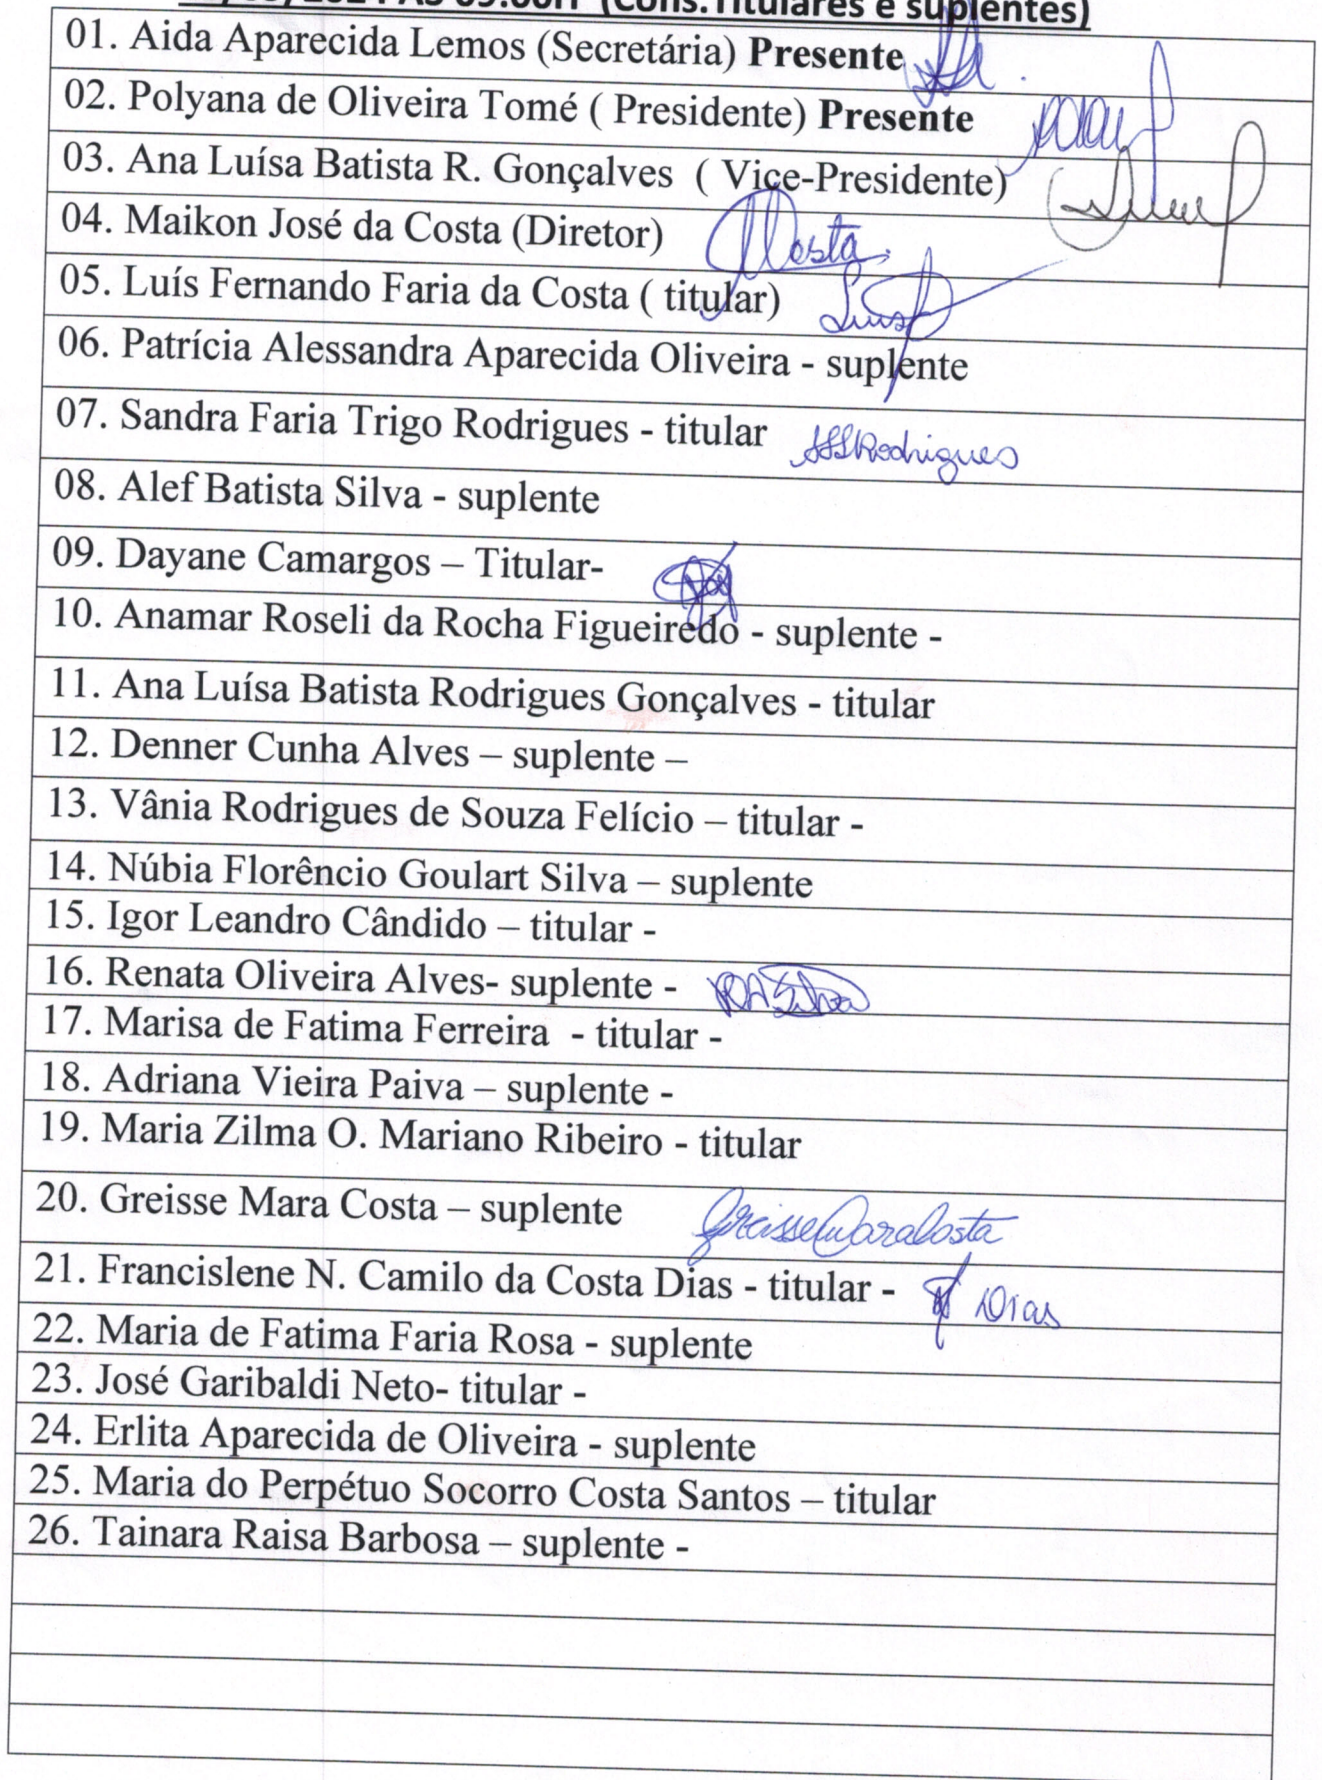 (Cons.Titulares e suplentes)
01. Aida Aparecida Lemos (Secretária) Presente
02. Polyana de Oliveira Tomé ( Presidente) Presente
03. Ana Luísa Batista R. Gonçalves ( Vice-Presidente)
04. Maikon José da Costa (Diretor) Costa
05. Luís Fernando Faria da Costa ( titular) Luis
06. Patrícia Alessandra Aparecida Oliveira - suplente
07. Sandra Faria Trigo Rodrigues - titular Rodrigues
08. Alef Batista Silva - suplente
09. Dayane Camargos – Titular-
10. Anamar Roseli da Rocha Figueiredo - suplente -
11. Ana Luísa Batista Rodrigues Gonçalves - titular
12. Denner Cunha Alves – suplente –
13. Vânia Rodrigues de Souza Felício – titular -
14. Núbia Florêncio Goulart Silva – suplente
15. Igor Leandro Cândido – titular -
16. Renata Oliveira Alves- suplente - RASilva
17. Marisa de Fatima Ferreira - titular -
18. Adriana Vieira Paiva – suplente -
19. Maria Zilma O. Mariano Ribeiro - titular
20. Greisse Mara Costa – suplente Greisse Mara Costa
21. Francislene N. Camilo da Costa Dias - titular - Dias
22. Maria de Fatima Faria Rosa - suplente
23. José Garibaldi Neto- titular -
24. Erlita Aparecida de Oliveira - suplente
25. Maria do Perpétuo Socorro Costa Santos – titular
26. Tainara Raisa Barbosa – suplente -